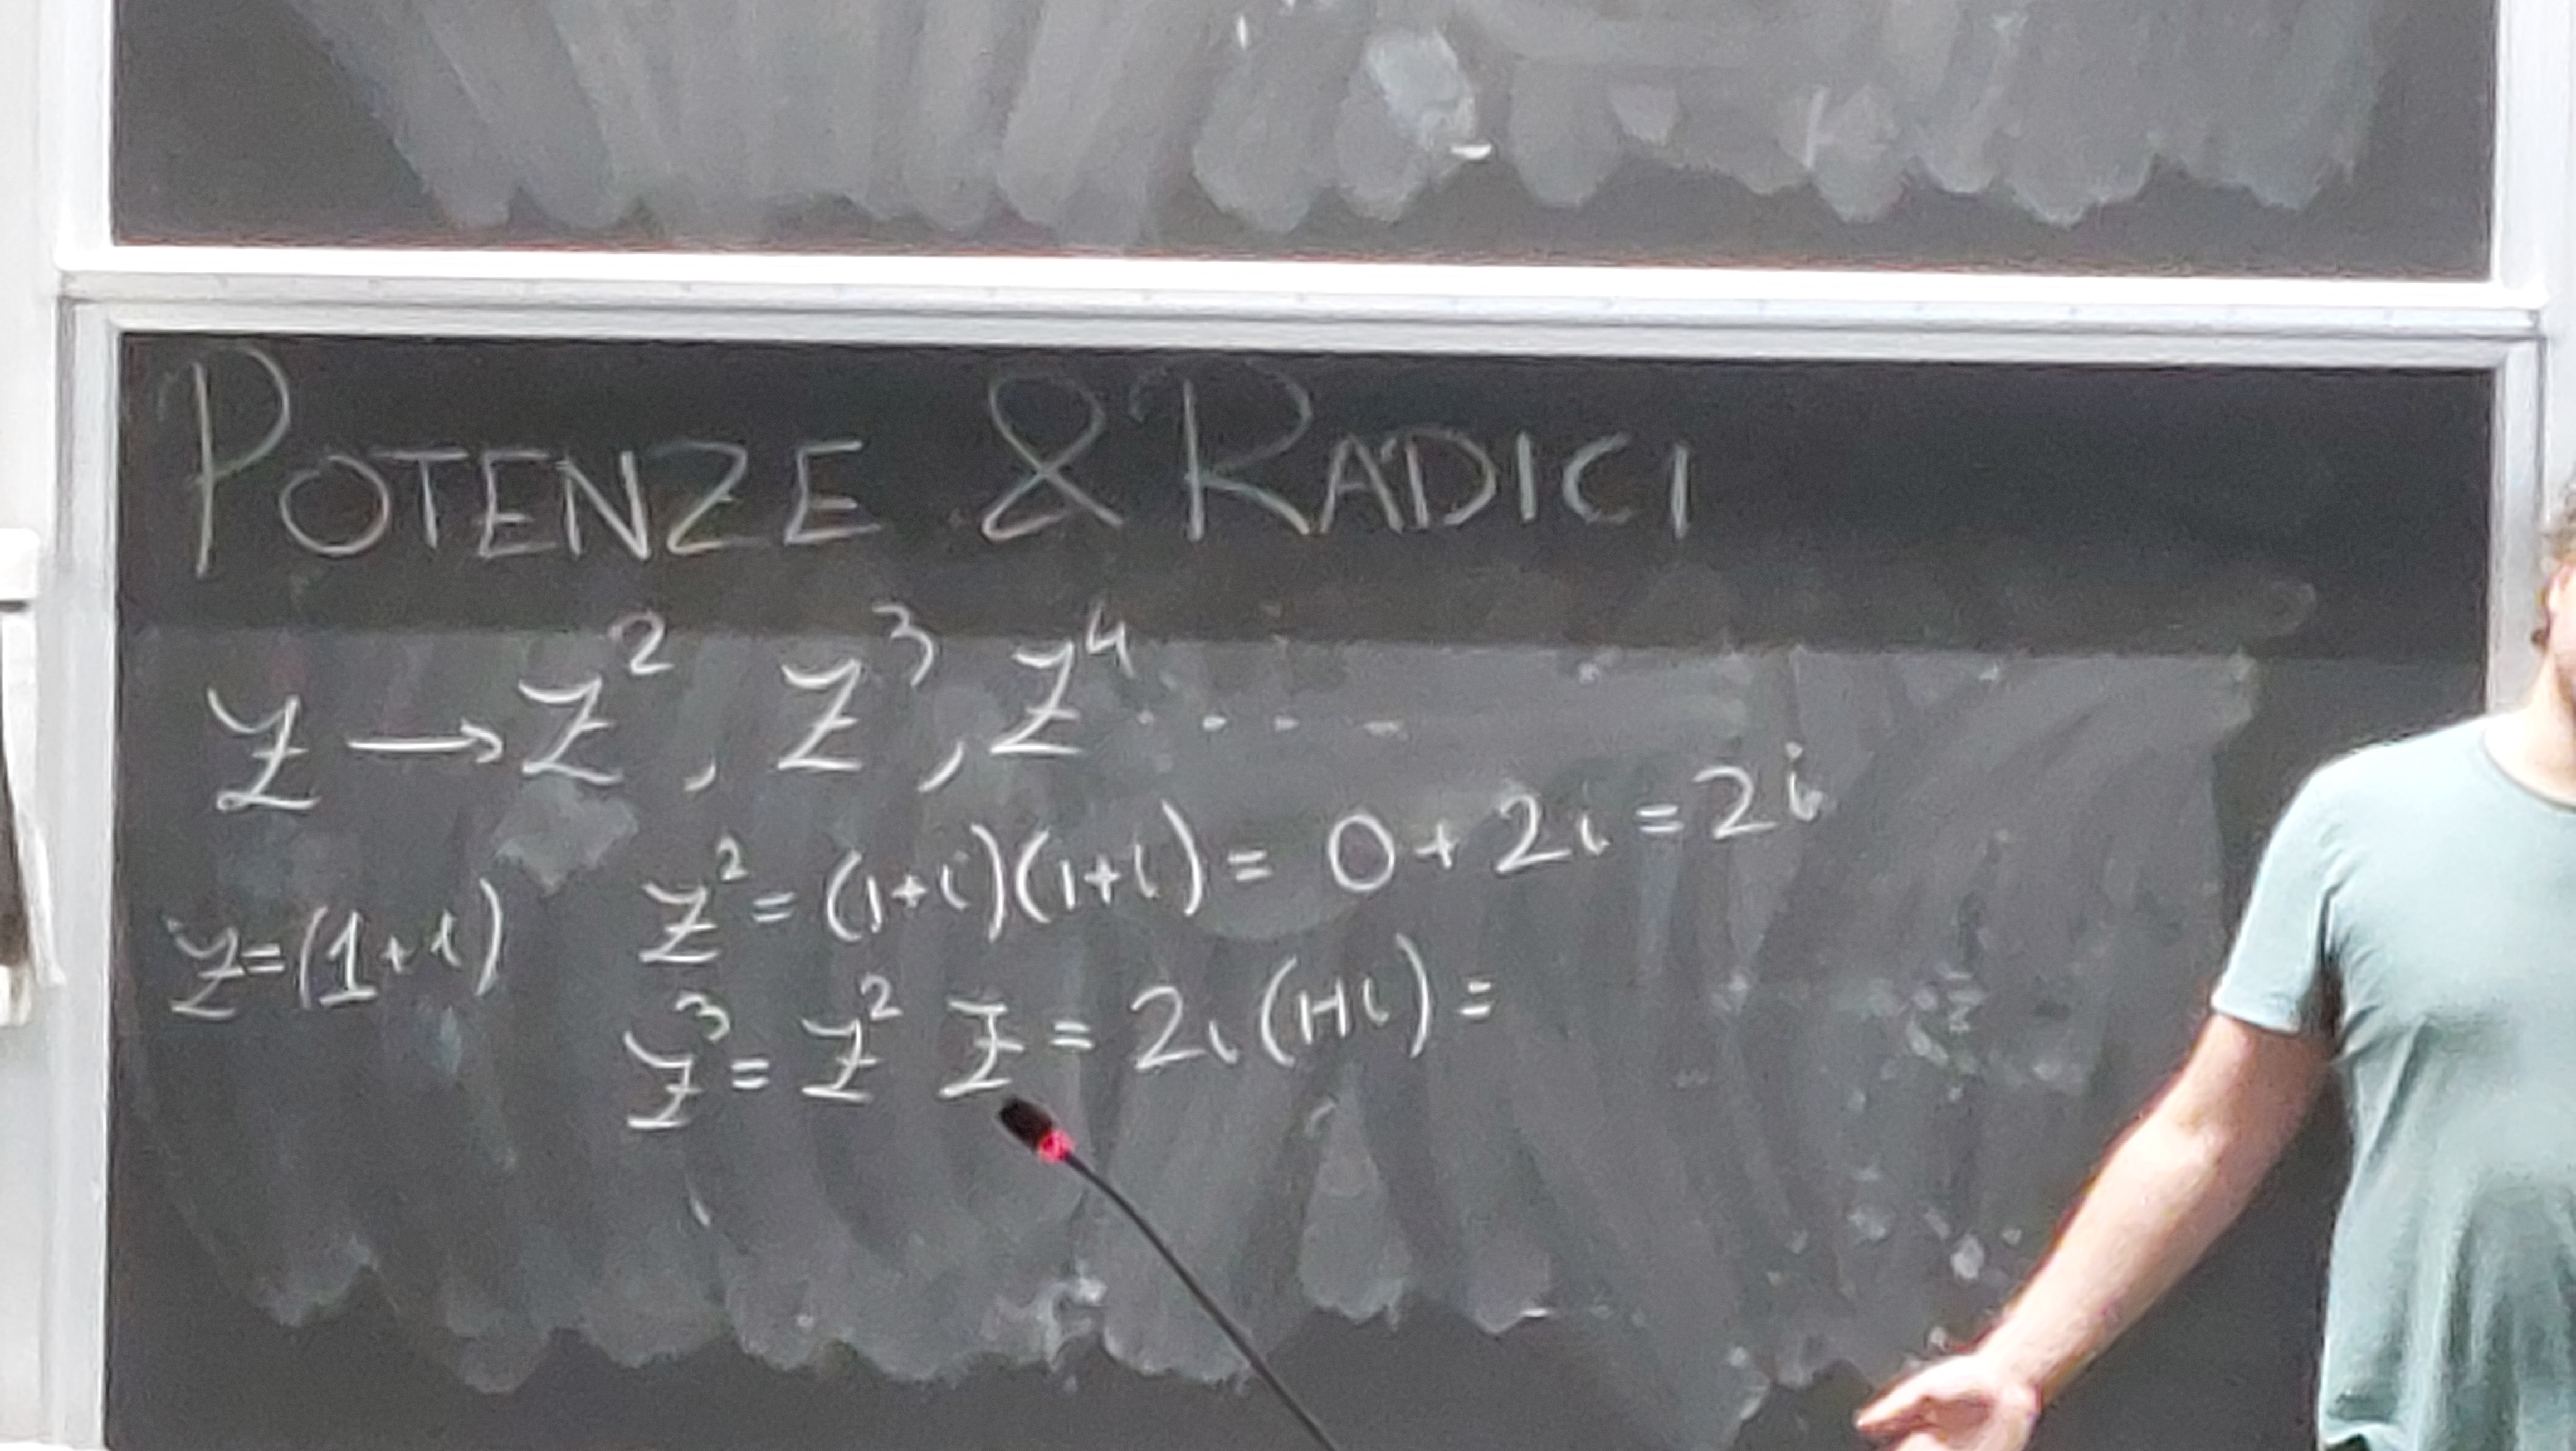 POTENZE & RADICI
z → z², z³, z⁴ . . . . -
z² = (1+i)(1+i) = 0 + 2i = 2i
z=(1+i)
z³ = z² z = 2i (1+i) =